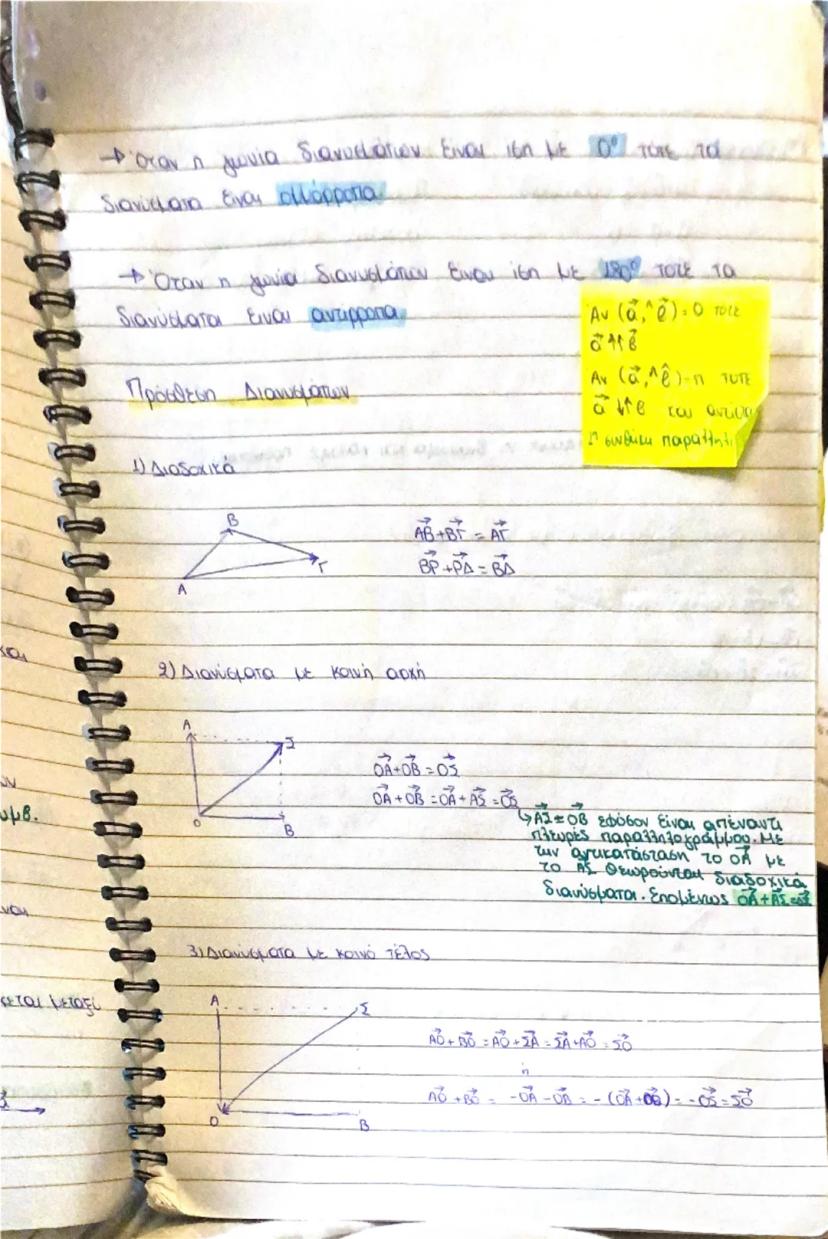 → Όταν η γωνία διανυσμάτων είναι ίση με 0° τότε τα
διανύσματα είναι ομόρροπα
→ Όταν η γωνία διανυσμάτων είναι ίση με 180° τότε τα
διανύσματα είναι αντίρροπα
Αν (α⃗,^ β⃗) = 0 τότε
α⃗ ↑↑ β⃗
Αν (α⃗,^ β⃗) = π τότε
α⃗ ↓↑ β
συνθήκη
Πρόσθεση Διανυσμάτων
1) Διαδοχικά
Β
Α
Γ
ΑΒ⃗ + ΒΓ⃗ = ΑΓ⃗
ΒΡ⃗ + ΡΔ⃗ = ΒΔ⃗
2) Διανύσματα με κοινή αρχή
Α
Σ
Ο
Β
ΟΑ⃗ + ΟΒ⃗ = ΟΣ⃗
ΟΑ⃗ + ΟΒ⃗ = ΟΑ⃗ + ΑΣ⃗ = ΟΣ⃗
↳ ΑΣ⃗ = ΟΒ⃗ εφόσον είναι απέναντι
πλευρές παραλληλογράμμου. Με
την αντικατάσταση το ΟΑ⃗ με
το ΑΣ⃗ θεωρούνται διαδοχικά
διανύσματα. Επομένως ΟΑ⃗ + ΑΣ⃗ = ΟΣ⃗
3) Διανύσματα με κοινό τέλος
Α
Σ
Ο
Β
ΑΟ⃗ + ΒΟ⃗ = ΑΟ⃗ + ΣΑ⃗ = ΣΑ⃗ + ΑΟ⃗ = ΣΟ⃗
ή
ΑΟ⃗ + ΒΟ⃗ = -ΟΑ⃗ - ΟΒ⃗ = -(ΟΑ⃗ + ΟΒ⃗) = -ΟΣ⃗ = ΣΟ⃗
υμβ.
κεται μεταξύ